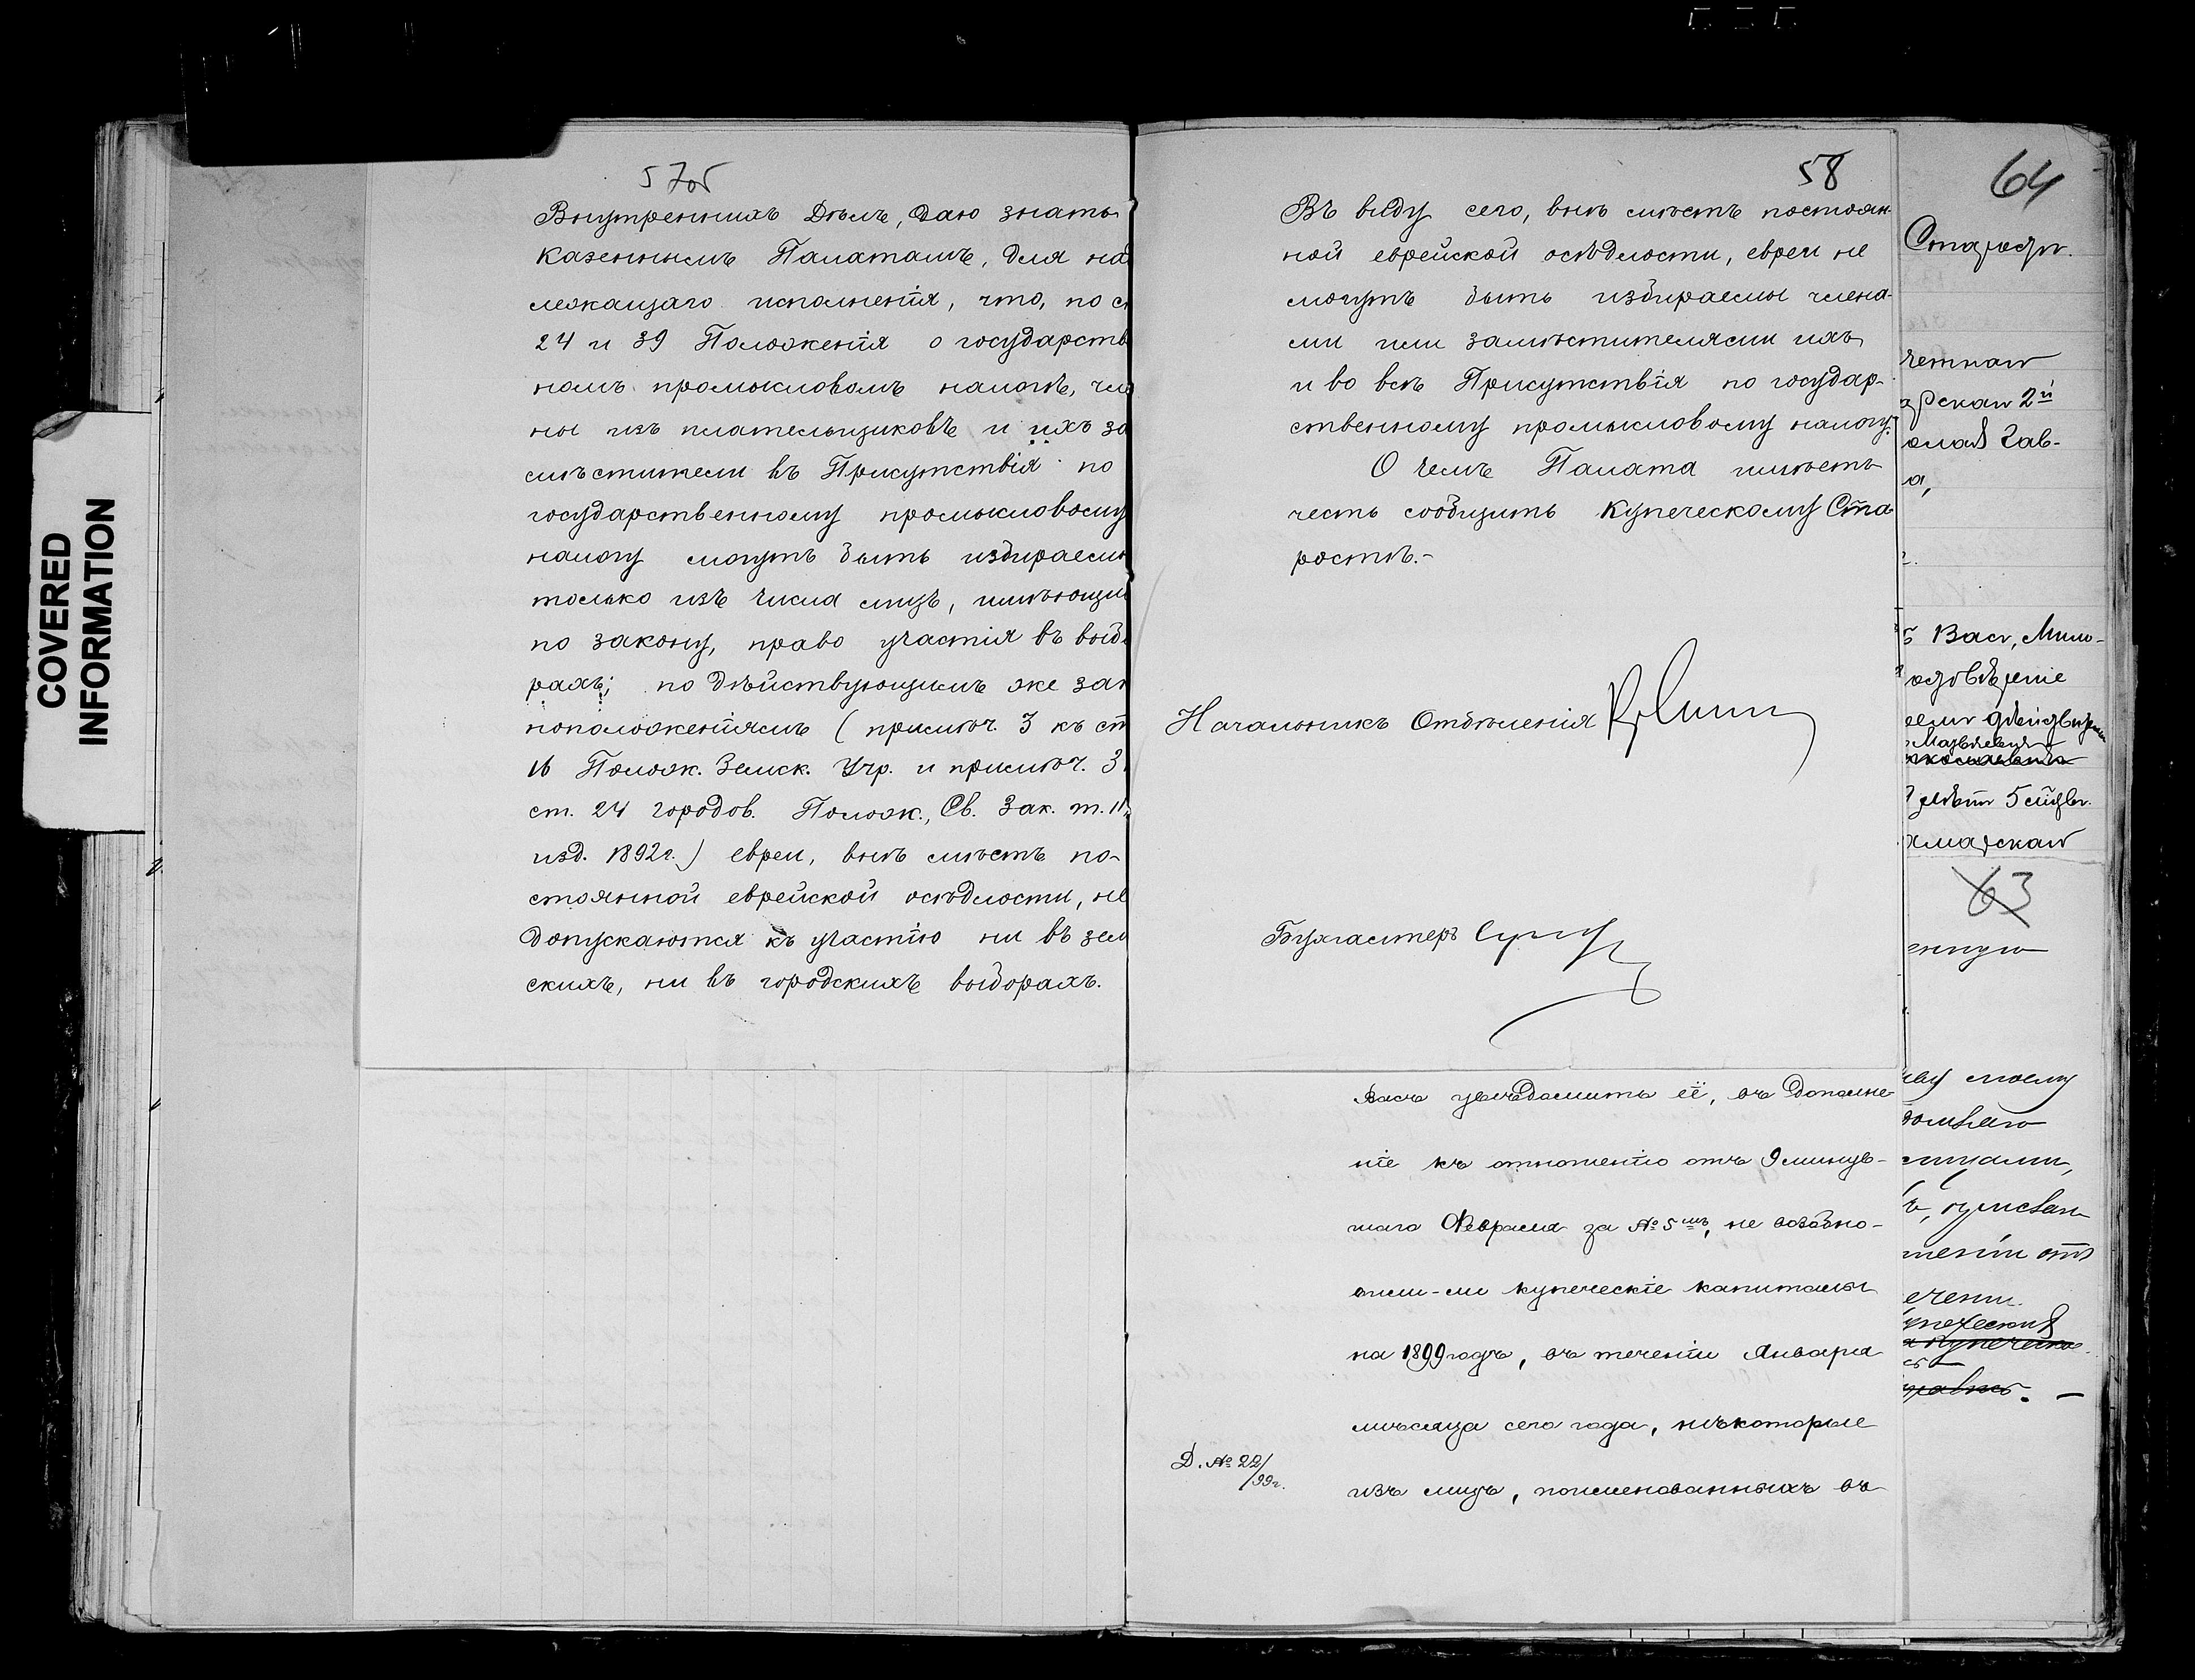 57об
Внутреннихъ Дѣлъ, даю знать
Казеннымъ Палатамъ, для над
лежащаго исполненія, что, по с
24 и 39 Положенія о государств
номъ промысловомъ налогѣ, чле
ны изъ плательщиковъ и ихъ за
мѣстители въ Присутствія по
государственному промысловому
налогу могутъ быть избираемы
только изъ числа лицъ, имѣющи
по закону, право участія въ выбо
рахъ; по дѣйствующимъ же зак
ноположеніямъ (примѣч. 3 къ ст
16 Полож. Земск. Учр. и примѣч. 3
ст. 24 Городов. Полож., Св. Зак. т. II,
изд. 1892 г.) евреи, внѣ мѣстъ по-
стоянной еврейской осѣдлости, не
допускаются къ участію ни въ зем
скихъ, ни въ городскихъ выборахъ.
COVERED
INFORMATION
58
Въ виду сего, внѣ мѣстъ постоян-
ной еврейской осѣдлости, евреи не
могутъ быть избираемы члена-
ми или замѣстителями ихъ
и во всѣ Присутствія по государ-
ственному промысловому налогу.
О чемъ Палата имѣетъ
честь сообщить Купеческому Ста
ростѣ.-
Начальникъ Отдѣленія
Бухгалтеръ
Васъ увѣдомить её, въ дополне
ніе къ отношенію отъ 9 минув-
шаго Февраля за № 5мъ, не возобно-
вили-ли купеческіе капиталы
на 1899 годъ, въ теченіи Января
мѣсяца сего года, нѣкоторые
изъ лицъ, поименованныхъ въ
Д. № 22/99г.
64
Старостѣ.
2й
Вас, Мило-
5
63
ву моему
ицами,
шеніи отъ